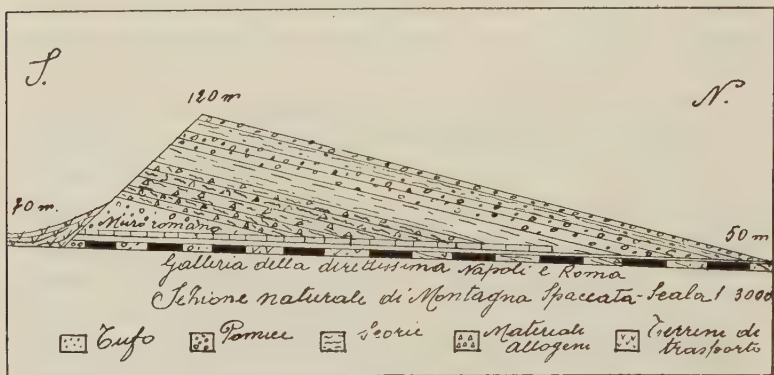 S.
N.
120 m
70 m.
50 m.
Muro romano
Galleria della direttissima Napoli e Roma
Sezione naturale di Montagna Spaccata - Scala 1 3000
Tufo
Pomici
Scorie
Materiali
allogeni
Terreni di
trasporto